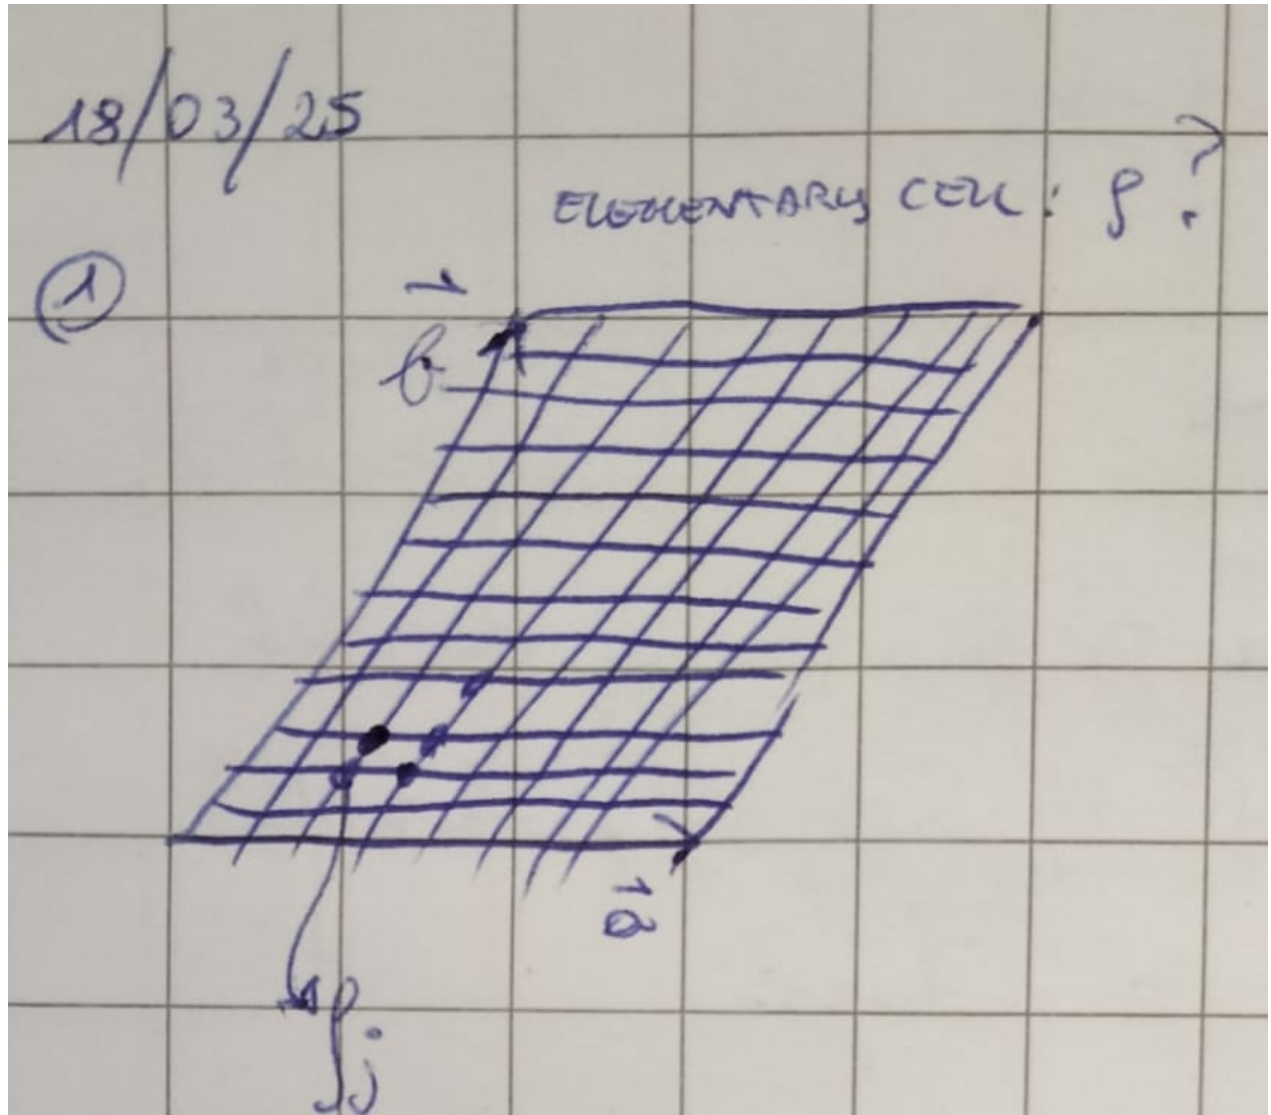 18/03/25
ELEMENTARY CELL: ρ?
①
b⃗
a⃗
ρj